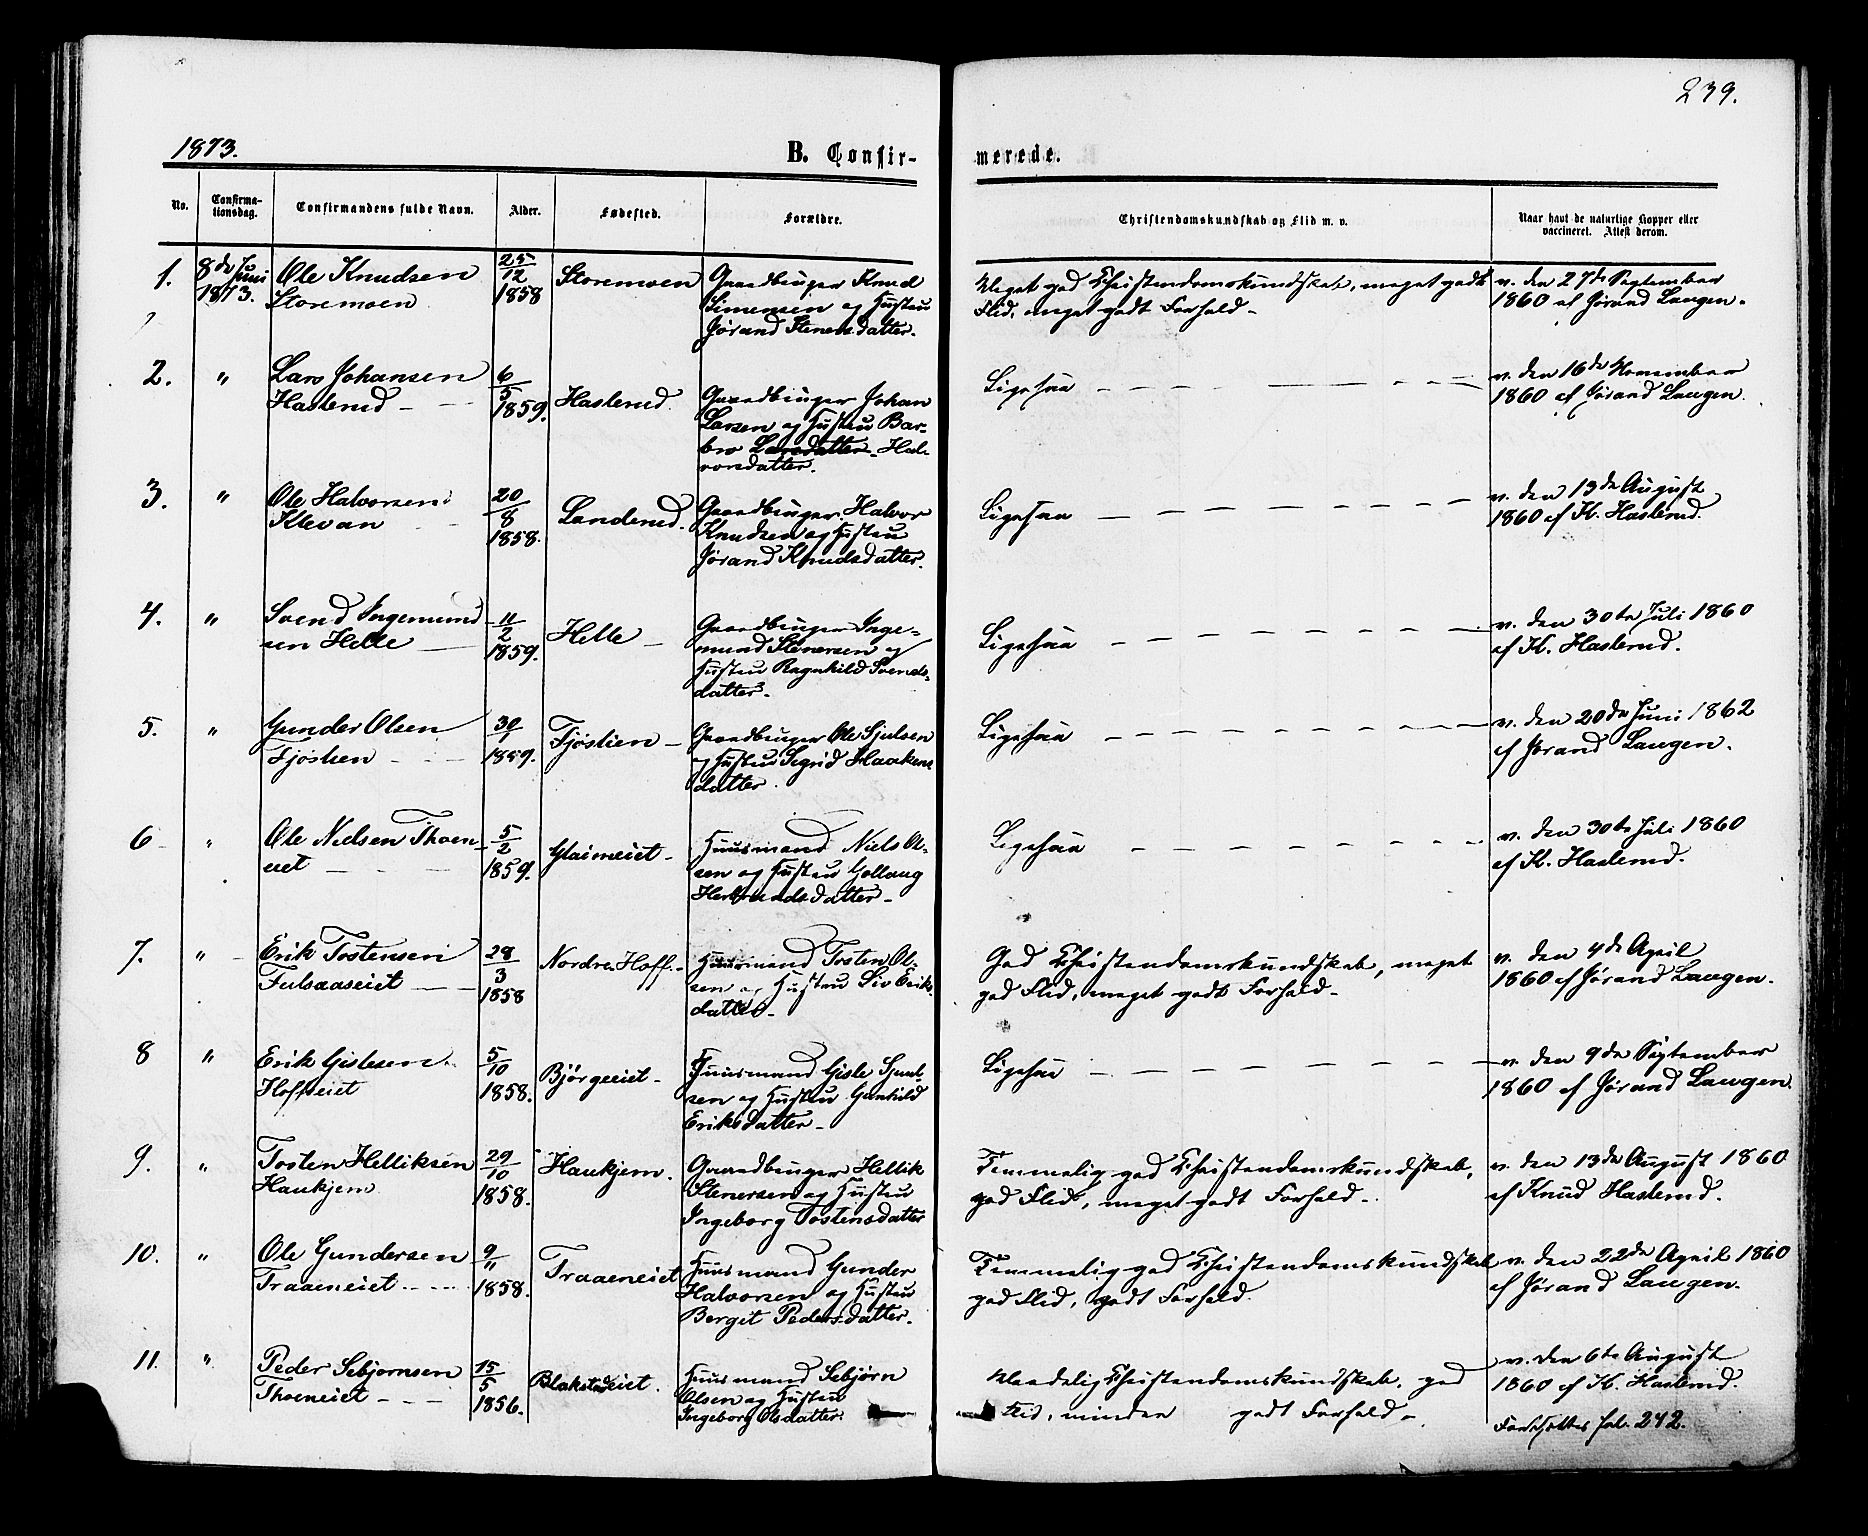 239.
1873.
B. Confir-
merede.
No.
Confirma-
tionsdag.
Confirmandens fulde Navn.
Alder.
Fødested.
Forældre.
Christendomskundskab og Flid m. v.
Naar havt de naturlige Kopper eller
vaccineret. Attest derom.
1. 8de Juni 1873. Ole Knudsen
Storemoen
25/12 1858
Storemoen
Gaardbruger Knud
Simensen og Hustru
Jørand Stenersdatter.
Meget god Christendomskundskab, meget godt
Flid, meget godt Forhold -
v. den 27de September
1860 af Jørand Laugen.
2. " Lars Johansen
Haslerud
6/5 1859.
Haslerud.
Gaardbruger Johan
Larsen og Hustru Bar-
bro Larsdatter. Hal-
vorsdatter.
Ligesaa
v. den 16de November
1860 af Jørand Laugen.
3. " Ole Halvorsen
Klevan
20/8 1858.
Landerud.
Gaardbruger Halvor
Knudsen og Hustru
Jørand Knudsdatter.
Ligesaa
v. den 13de August
1860 af K. Haslerud.
4. " Svend Ingemund
sen Helle
11/2 1859.
Helle
Gaardbruger Inge-
mund Stenersen og
Hustru Ragnhild Svends-
datter.
Ligesaa
v. den 30te Juli 1860
af K. Haslerud.
5. " Gunder Olsen
Fjøslien
30/1 1859.
Fjøslien
Gaardbruger Ole Sjulsen
og Hustru Sigrid Haakens
datter.
Ligesaa
v. den 20de Juni 1862
af Jørand Laugen.
6 " Ole Nielsen Thoen-
eiet
5/2 1859.
Glaimeiet
Huusmand Niels Ol-
sen og Hustru Gollaug
Herbrandsdatter
Ligesaa
v. den 30te Juli 1860
af K. Haslerud.
7. " Erik Tostensen
Fulsaaseiet
28/3 1858
Nordre Hoff.
Huusmand Tosten Ol-
sen og Hustru Siv Erik-
datter
God Christendomskundskab, meget
god Flid, meget godt Forhold
v. den 4de April
1860 af Jørand Laugen.
8 " Erik Gislesen
Hoffseiet
5/10 1858.
Bjørgeeiet
Huusmand Gisle
sen og Hustru Gunhild
Eriksdatter
Ligesaa
v. den 9de September
1860 af Jørand Laugen.
9. " Tosten Helliksen
Haukjem
29/10 1858.
Haukjem.
Gaardbruger Hellik
Stenersen og Hustru
Ingeborg Tostensdatter
Temmelig god Christendomskundskab,
god Flid, meget godt Forhold
v. den 13de August 1860
af Knud Haslerud.
10. " Ole Gundersen
Traaeneiet
9/11 1858.
Traaeneiet
Huusmand Gunder
Halvorsen og Hustru
Bergit Pedersdatter.
Temmelig god Christendomskundskab
god Flid, godt Forhold.
v. den 22de April 1860
af Jørand Laugen.
11. " Peder Sebjørnsen
Thoeneiet
15/5 1856.
Blakstadeiet.
Huusmand Sebjørn
Olsen og Hustru
Ingeborg Olsdatter.
Maadelig Christendomskundskab, god
Flid, minden godt Forhold
v. den 6te August
1860 af K. Haslerud.
Fortsættes fol. 242.